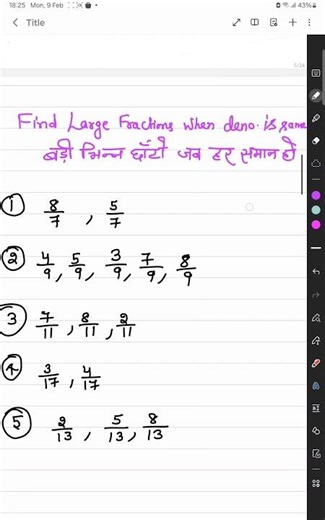 18:25 Mon, 9 Feb 43%
Title
5/24
Find Large Fractions when deno. is same
बड़ी भिन्न छाँटो जब हर समान हो
① 8/7 , 5/7
② 4/9, 5/9, 3/9, 7/9, 8/9
③ 7/11, 8/11, 2/11
④ 3/17, 4/17
⑤ 2/13, 5/13, 8/13